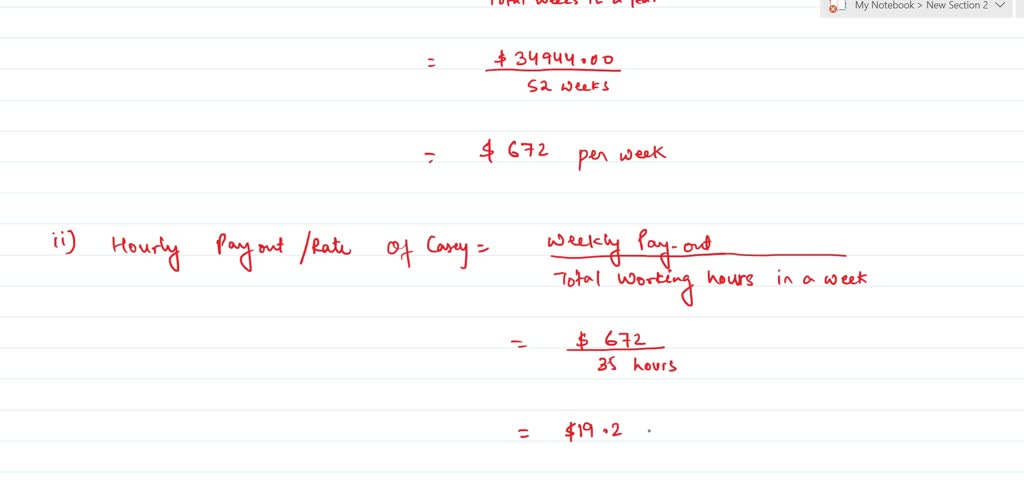 My Notebook > New Section 2
Total weeks in a year
= $ 34944.00
52 weeks
= $ 672 per week
ii) Hourly Payout /Rate Of Casey = Weekly Pay-out
Total Working hours in a week
= $ 672
35 hours
= $19.2